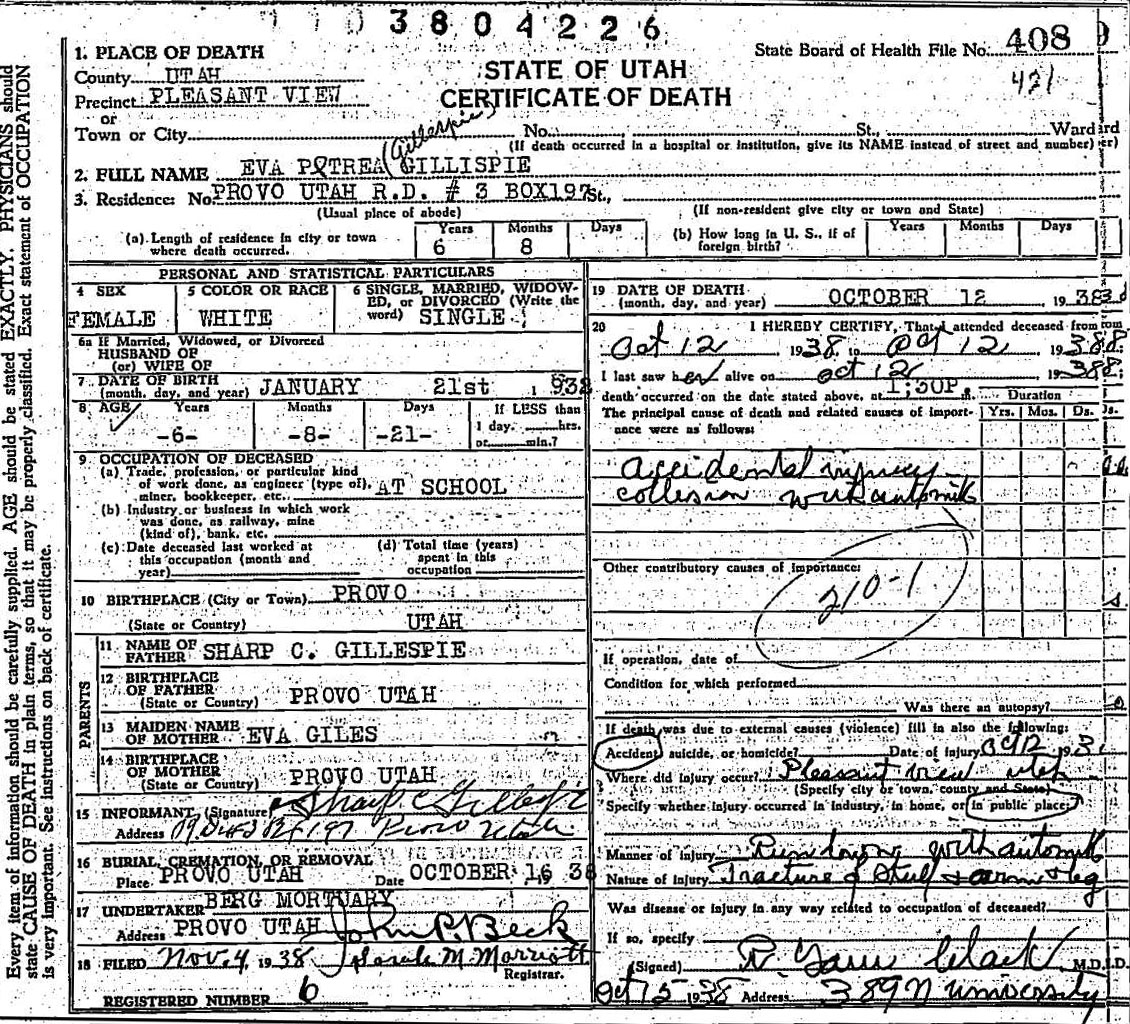 3804226
State Board of Health File No. 408
421
STATE OF UTAH
CERTIFICATE OF DEATH
1. PLACE OF DEATH
County UTAH
Precinct PLEASANT VIEW
or
Town or City No. St., Ward
(If death occurred in a hospital or institution, give its NAME instead of street and number)
(Gillespie)
2. FULL NAME EVA PETREA GILLISPIE
3. Residence: No. PROVO UTAH R.D. # 3 BOX197 St.,
(Usual place of abode) (If non-resident give city or town and State)
(a) Length of residence in city or town where death occurred. Years 6 Months 8 Days
(b) How long in U. S., if of foreign birth? Years Months Days
PERSONAL AND STATISTICAL PARTICULARS
4 SEX FEMALE
5 COLOR OR RACE WHITE
6 SINGLE, MARRIED, WIDOWED, or DIVORCED (Write the word) SINGLE
6a If Married, Widowed, or Divorced
HUSBAND OF
(or) WIFE OF
7 DATE OF BIRTH
(month, day, and year) JANUARY 21st 1932
8 AGE Years Months Days If LESS than
-6- -8- -21- 1 day. hrs.
or min.?
9 OCCUPATION OF DECEASED
(a) Trade, profession, or particular kind
of work done, as engineer (type of),
miner, bookkeeper, etc. AT SCHOOL
(b) Industry or business in which work
was done, as railway, mine
(kind of), bank, etc.
(c) Date deceased last worked at
this occupation (month and
year)
(d) Total time (years)
spent in this
occupation
10 BIRTHPLACE (City or Town) PROVO
(State or Country) UTAH
PARENTS
11 NAME OF
FATHER SHARP C. GILLESPIE
12 BIRTHPLACE
OF FATHER PROVO UTAH
(State or Country)
13 MAIDEN NAME
OF MOTHER EVA GILES
14 BIRTHPLACE
OF MOTHER PROVO UTAH
(State or Country)
15 INFORMANT (Signature) Sharp C Gillespie
Address 197 Provo Utah
16 BURIAL, CREMATION, OR REMOVAL
Place PROVO UTAH Date OCTOBER 16 1938
17 UNDERTAKER BERG MORTUARY
Address PROVO UTAH John P. Beck
18 FILED Nov. 4 1938 Sarah M. Marriott
Registrar.
REGISTERED NUMBER 6
19 DATE OF DEATH
(month, day, and year) OCTOBER 12 1938
20 I HEREBY CERTIFY, That I attended deceased from
Oct 12 1938 to Oct 12 1938
I last saw her alive on Oct 12 1938
death occurred on the date stated above, at 1;30P. m.
Duration
The principal cause of death and related causes of importance were as follows: Yrs. Mos. Ds.
accidental injury
collision with automb
Other contributory causes of importance:
210-1
If operation, date of
Condition for which performed
Was there an autopsy?
If death was due to external causes (violence) fill in also the following:
Accident, suicide, or homicide? Date of injury Oct 12 193
Where did injury occur? Pleasant view utah
(Specify city or town, county and State)
Specify whether injury occurred in industry, in home, or in public place:
Manner of injury Run down with automb
Nature of injury Fracture of Skull + arm + leg
Was disease or injury in any way related to occupation of deceased?
If so, specify
(Signed) Clark M.D.
Oct 15 1938 Address 389 N University
Every item of information should be carefully supplied. AGE should be stated EXACTLY. PHYSICIANS should
state CAUSE OF DEATH in plain terms, so that it may be properly classified. Exact statement of OCCUPATION
is very important. See instructions on back of certificate.